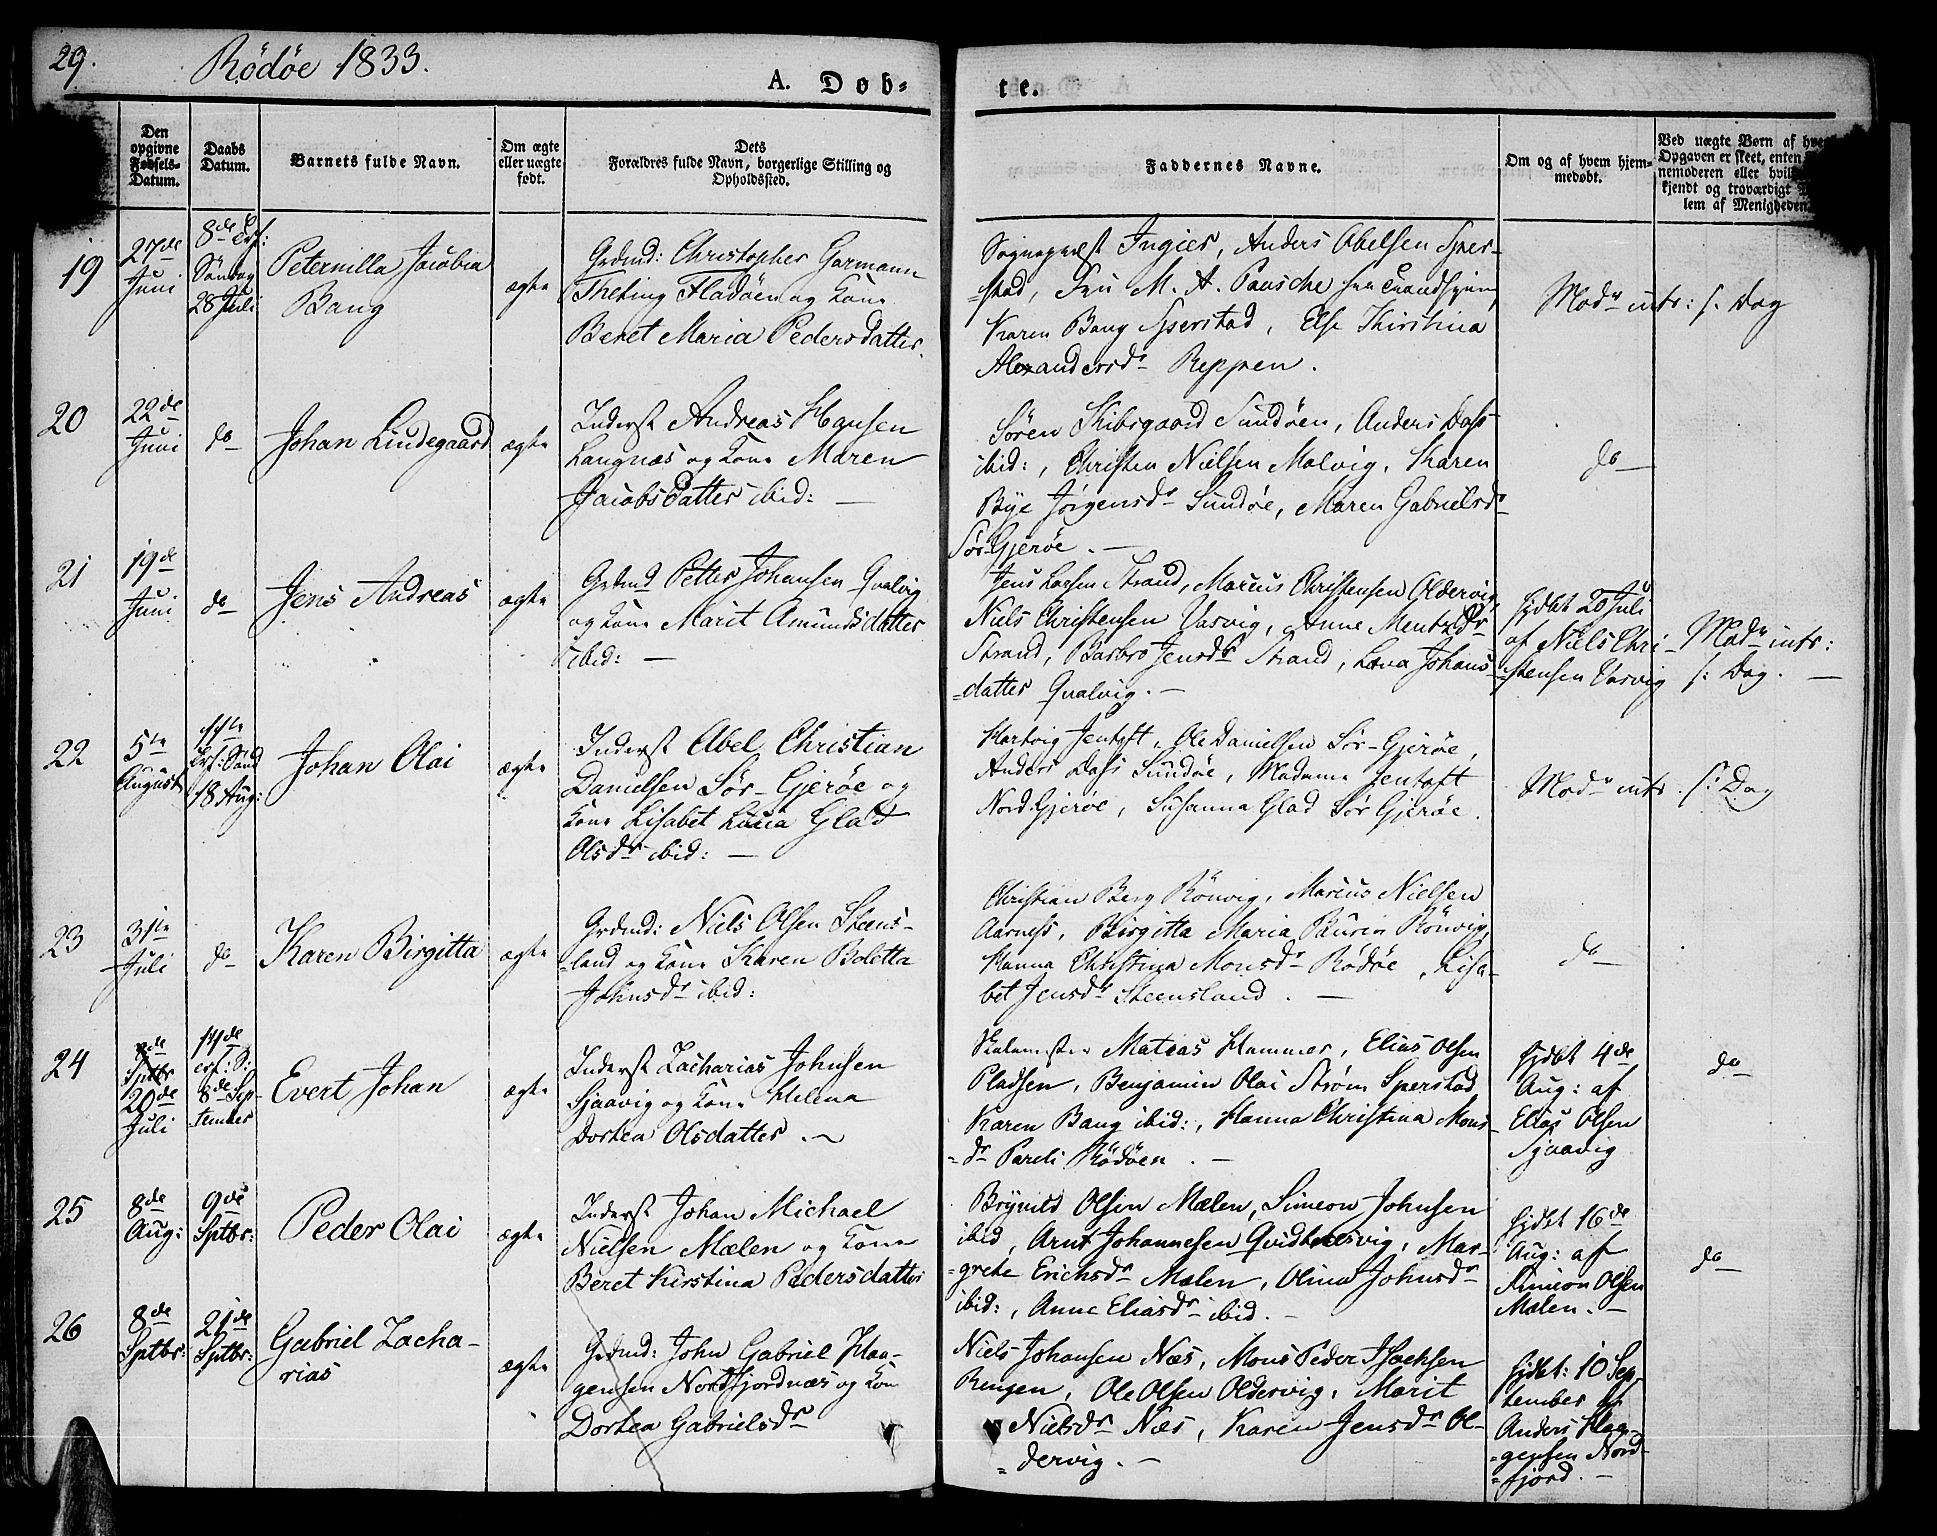 29. Rödöe 1833.
A. Døb-
te.
Den opgivne Fødsels-Datum.
Daabs Datum.
Barnets fulde Navn.
Om ægte eller uægte født.
Dets Forældres fulde Navn, borgerlige Stilling og Opholdssted.
Faddernes Navne.
Om og af hvem hjem-
medøbt.
Ved uægte Børn af
Opgaven er skeet, enten
nemoderen eller
kjendt og troværdigt
lem af Menigheden.
19
27de
Juni
8de
Söndag
28 Juli
Peternilla Jacobia
Bang
ægte
Grdmd: Christopher Garmann
Theting Fladöen og Kone
Beret Maria Pedersdatter.
Sogneprest Ingier, Anders Abelsen Sper-
=stad, Fru M. A. Pausche
Karen Bang Sperstad, Else Kirstina
Alexandersdr Reppen.
Modr intr: s. Dag
20
22de
Juni
do
Johan Lindegaard
ægte
Inderst Andreas Hansen
Langnæs og Kone Maren
Jacobsdatter ibid: —
Sören Skibsgaard Sundöen, Anders Dass
ibid:, Christen Nielsen Malvig, Karen
Bye Jörgensdr Sundöe, Maren Gabrielsdr
Sör-Gjeröe. —
do
21
19de
Juni
do
Jens Andreas
ægte
Grdmd Petter Johansen Qvalvig
og Kone Marit Amundsdatter
ibid: —
Jens Larsen Strand, Marcus Christensen Oldervig,
Niels Christensen Varvig, Anne Mentzdr
Strand, Barbro Jensdr Strand, Lova Johans-
=datter Qvalvig. —
hjdbt 20 Juli
af Niels Chri-
stensen Varvig
Modr intr:
s: Dag. —
22
5te
August
11te
Sönd
18 Aug:
Johan Olai
ægte
Inderst Abel Christian
Danielsen Sör-Gjeröe og
Kone Lisabet Lucia Glad
Olsdr ibid: —
Hartvig Jentoft, Ole Danielsen Sör-Gjeröe,
Anders Dass Sundöe, Madame Jentoft
Nord Gjeröe, Susanna Glad Sör Gjeröe.
Modr intr. s: Dag
23
31te
Juli
do
Karen Birgitta
ægte
Grdmd: Niels Olsen Steens-
=land og Kone Karen Boletta
Johnsdr ibid:
Christian Berg Rönvig, Marcus Nielsen
Aarness, Birgitta Maria Rönvig,
Hanna Christina Monsdr Rödöe, Lisa-
bet Jensdr Steensland. —
do
24
8de
Sptbr
20de
Juli
14de
8de Sep-
tember
Evert Johan
ægte
Inderst Zacharias Johnsen
Sjaavig og Kone Helena
Dortea Olsdatter. —
Matias Hammer, Elias Olsen
Pladsen, Benjamin Olai Ström Sperstad
Karen Bang ibid:, Hanna Christina Mons-
=dr Pareli Rödöen. —
hjdbt 4de
Aug: af
Elias Olsen
Sjaavig
do
25
8de
Aug:
9de
Sptbr:
Peder Olai
ægte
Inderst Johan Michael
Nielsen Mælen og Kone
Beret Kirstina Pedersdatter
Brynild Olsen Mælen, Simeon Johnsen
ibid, Arnt Johannesen, Mar-
=grete Erichsdr Mælen, Olina Johnsdr
ibid:, Anne Eliasdr ibid. —
hjdbt 16de
Aug: af
Simeon Olsen
Mælen. —
do
26
8de
Sptbr:
21de
Sptbr:
Gabriel Zacha-
rias
ægte
Grdmd: John Gabriel Haa-
gensen Nordfjordnæs og Kone
Dortea Gabrielsdr
Niels Johansen Næs, Mons Peder Isachsen
Rengen, Ole Olsen Oldervig, Marit
Nielsdr Næs, Karen Jensdr Ol-
=dervig. —
hjdbt: 10 Sep-
tember af
Anders Haa-
=gensen Nord-
=fjord. —